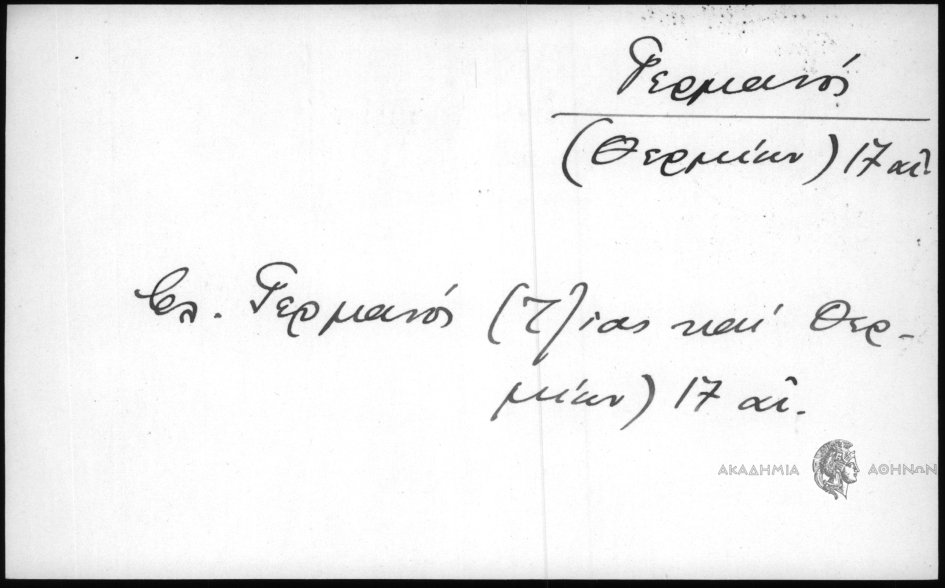 Γερμανός
(Θερμίων) 17 αἰ.
βλ. Γερμανός (Τζίας καί Θερ-
μίων) 17 αἰ.
ΑΚΑΔΗΜΙΑ ΑΘΗΝΩΝ